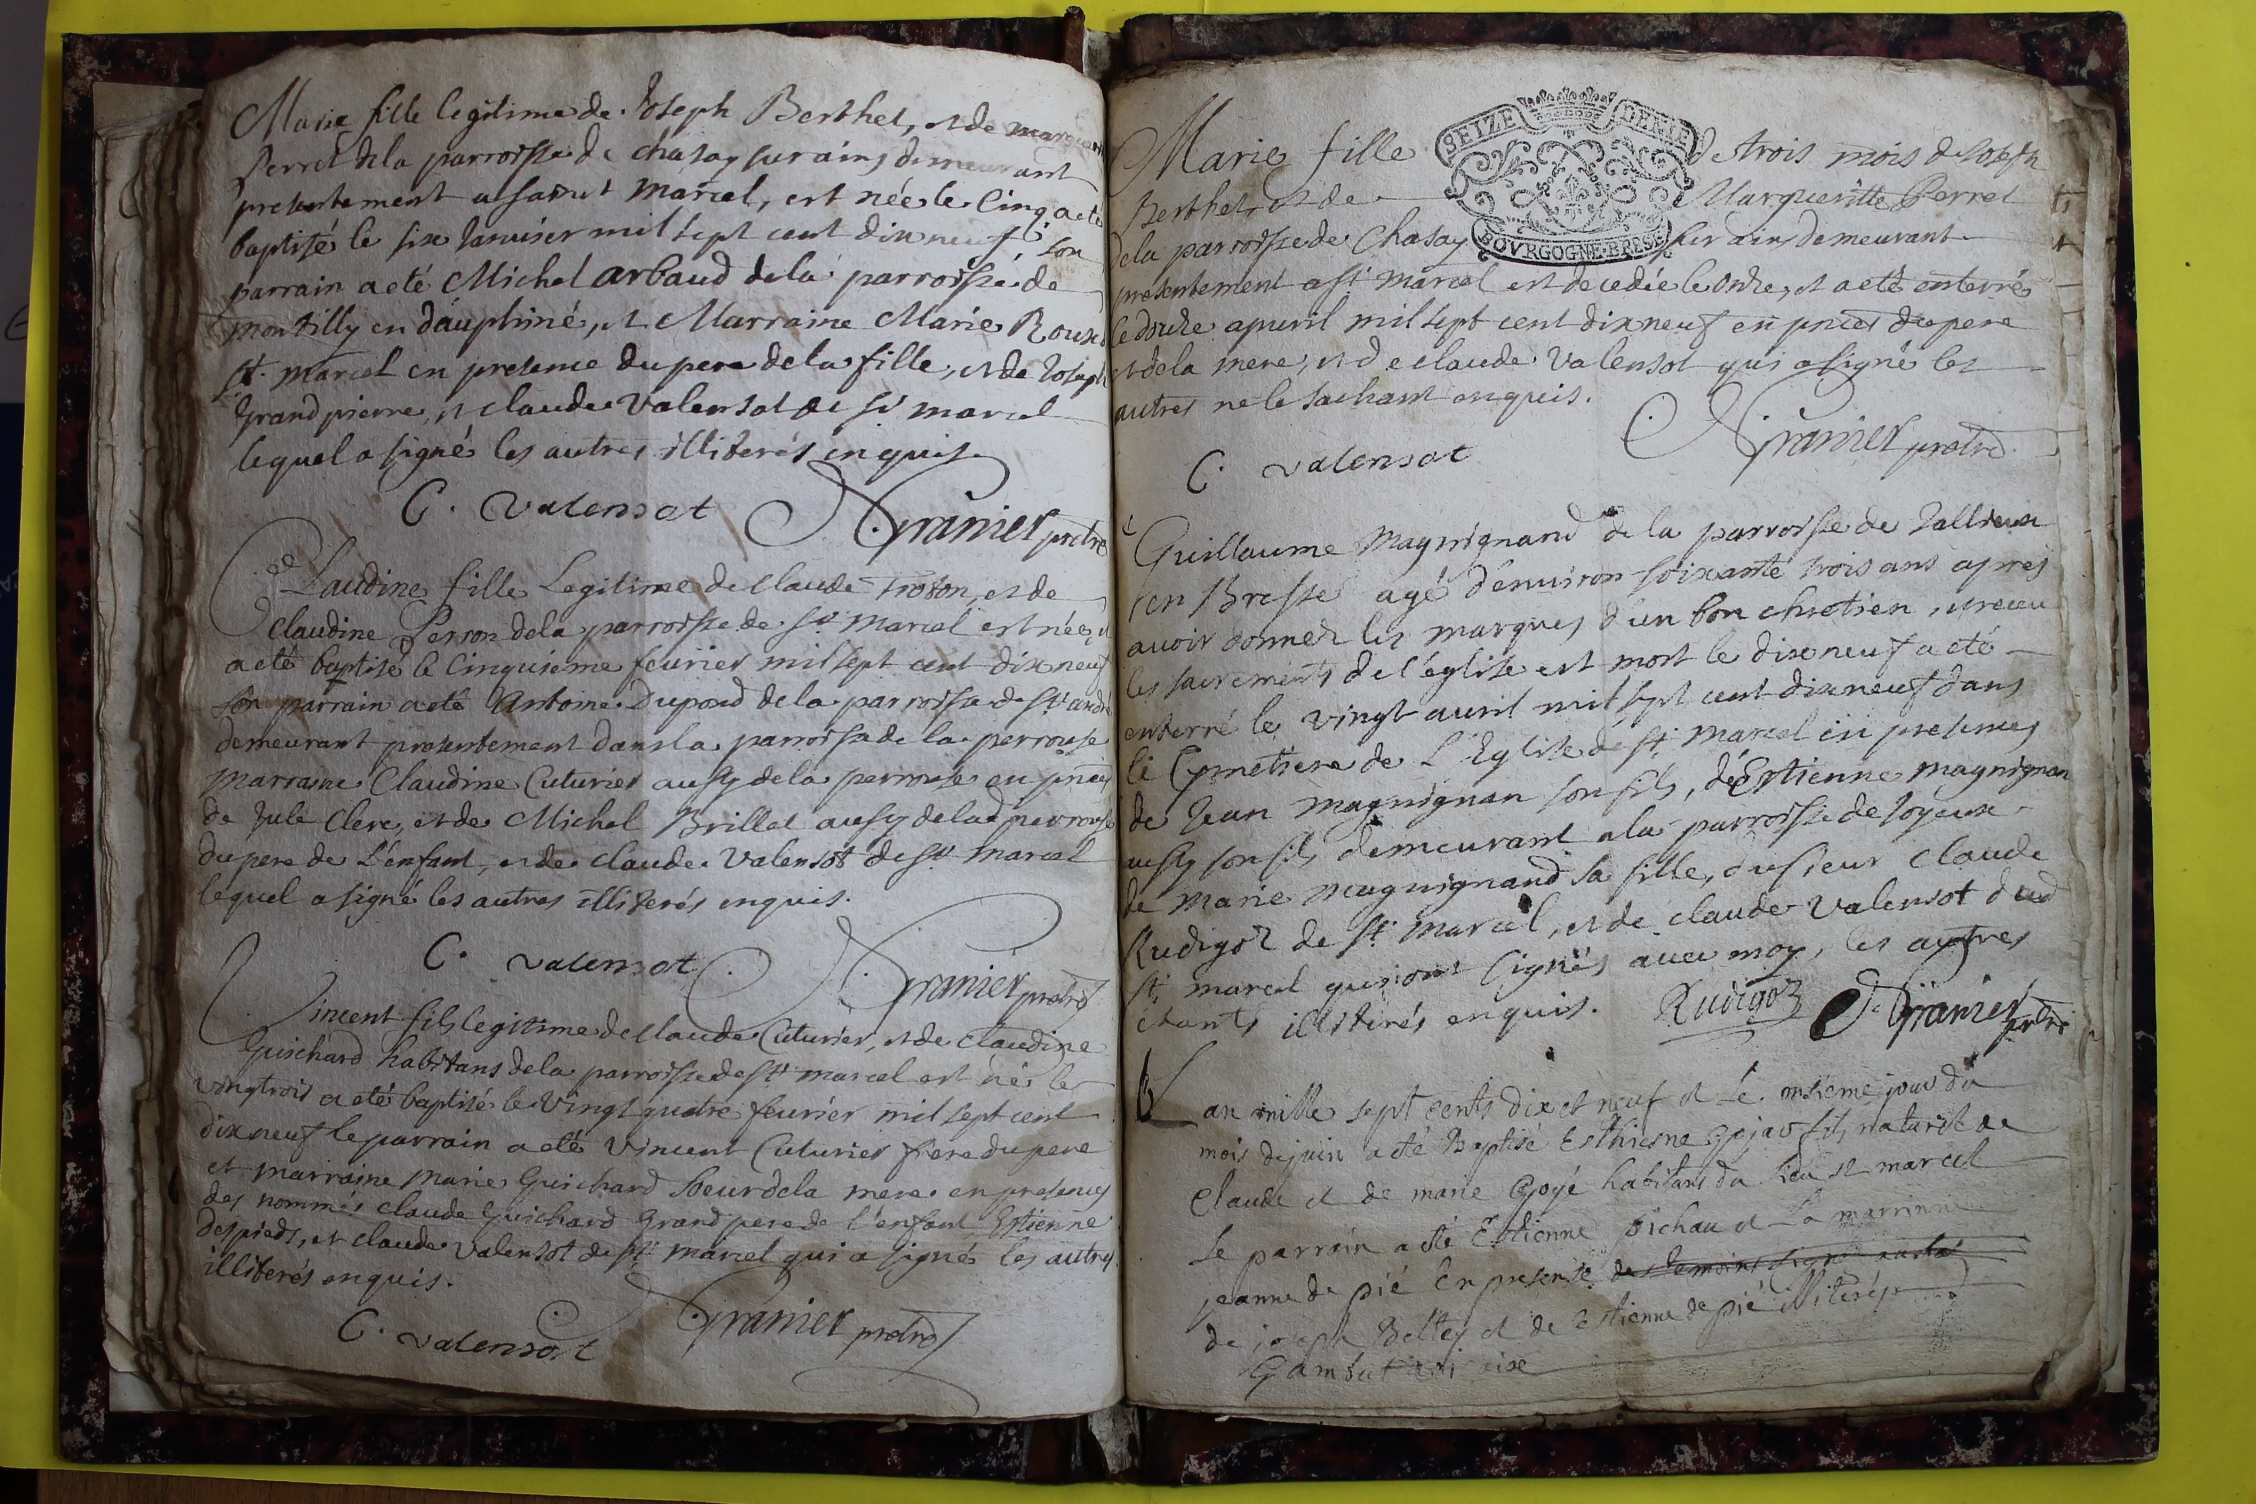 Marie fille legitime de Joseph Berthet, et de Marguerite
Perret de la parroisse de chasay sur ains demeurant
presentement a saint Marcel, est née le Cinq a eté
baptisé le six Janvier mil sept cent dix neuf son
parrain a eté Michel arbaud de la parroisse de
montilly en dauphiné, et Marraine Marie Roux de
St. marcel en presence du pere de la fille, et de Joseph
grandpierre, et claude Valensot de St marcel
lequel a signé les autres illiterés enquis.
C. valensot Granier pretre
Claudine fille Legitime de claude Troton, et de
claudine Perron de la parroisse de St marcel est née, et
a eté baptisé le Cinquieme fevrier mil sept cent dix neuf
son parrain a eté Antoine Dupond de la parroisse de St andré
demeurant presentement dans la parroisse de la perrouse
marraine Claudine Cuturier aussy de la perrouse en pnces
de Jule Clerc, et de Michel Brillet aussy de la perrouse
du pere de L'enfant, et de claude Valensot de St marcel
lequel a signé les autres illiterés enquis.
C. valensot Granier pretre
Vincent fils legitime de claude Cuturier, et de Claudine
Guichard habitans de la parroisse de St marcel est né le
vingtrois a eté baptisé le vingt quatre fevrier mil sept cent
dix neuf le parrain a eté Vincent Cuturier frere du pere
et marraine Marie Guichard soeur de la mere en presences
des nommés claude Guichard grand pere de l'enfant Estienne
despieds, et claude Valensot de St marcel qui a signé les autres
illiterés enquis.
C. valensot Granier pretre
SEIZE DENIE
BOVRGOGNE·BRESE
Marie fille de trois mois de Joseph
Berthet, et de Margueritte Perret
de la parroisse de Chasay sur ains demeurant
presentement a St marcel est decedée le onze, et a eté enterré
le douze apvril mil sept cent dix neuf en pnces du pere
et de la mere, et de claude Valensot qui a signé les
autres ne le sachant enquis.
C. valensot Granier pretre
Guillaume Magnignand de la parroisse de Tallieux
en Bresse agé d'environ soixante trois ans apres
avoir donnez les marques d'un bon chretien, et receu
les sacrements de l'église est mort le dix neuf a eté
enterré le vingt avril mil sept cent dix neuf dans
le Cymetiere de L'Eglise de St marcel en presences
de Jean magnignan son fils, d'Estienne magnignan
aussy son fils demeurant a la parroisse de Joyeux
de marie magnignand sa fille, du sieur Claude
Rudigoz de St marcel, et de claude Valensot dud
St marcel qui ont signés avec moy, les autres
étants illiterés enquis. Rudigoz Granier pretre
L an mille sept cents dix et neuf et Le onsieme jour du
mois de juin a eté Baptisé Esthienne fils naturel de
Claude et de marie Goyé habitans du lieu St marcel
Le parrain a eté Estienne pichau et La marrinne
jeanne de pié En presense
de joseph Beltey et de Estienne de pié illiterés
Gambut